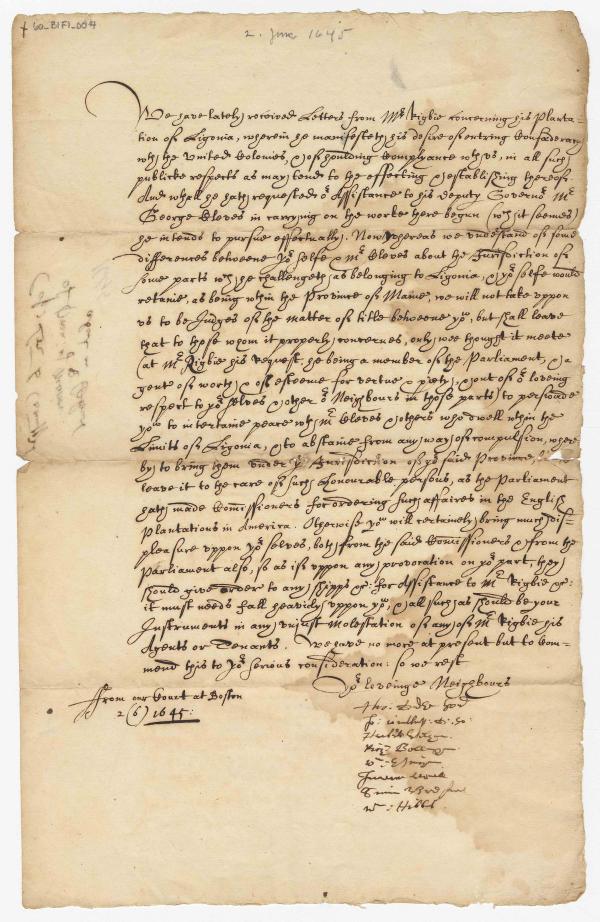 60_BIFI_004
2. June 1645
We have lately received Letters from Mr Rigbie concerning his Planta=
tion of Ligonia, wherein he manifesteth his desire of entring Confœderacy
wth the United Colonies, & of houlding Complyance wth us, in all such
publicke respects as may tend to the effecting & establishing thereof.
And whall he hath requested or Assistance to his deputy Governor Mr
George Cleves in carrying on the worke there begun (wch it seemes)
he intends to pursue effectually. Now whereas we vnderstand of some
differences betweene yor selfe & Mr Cleves about the Jurisdiction of
some parts wch he challengeth as belonging to Ligonia, & yor selfe would
retaine, as being wthin the Province of Maine, we will not take vppon
us to be Judges of the matter of title betweene yow, but shall leave
that to those whom it properly concernes, only wee thought it meete
(at Mr Rigbie his request, he being a member of the Parliament, & a
gent of worth, & of esteeme for vertue & piety, & out of or loving
respect to yor selves & other or Neighbours in those parts) to perswade
yow to intertaine peace wth Mr Cleves & others who dwell wthin the
Limits of Ligonia, & to abstaine from any way of compulsion, where
by to bring them vnder ye Jurisdiction of ye said Province,
leave it to the care of such Honourable persons, as the Parliament
hath made Comissioners for ordering such affaires in the English
Plantations in America. Otherwise yow will certainely bring much dis=
pleasure vppon yor selves, both from the said Comissioners & from the
Parliament also, so as if vppon any provocation on yor part, they
should give order to any shipps &c: for Assistance to Mr Rigbie &c:
it must needs fall heavily vppon yow, & all such as should be your
Instruments in any vniust Molestation of any of Mr Rigbie his
Agents or Tenants. We have no more at present but to Com=
mend this to yor serious consideration: so we rest
yor lovinge Neighbours
From our Court at Boston
2 (6) 1645:
Tho: Dudley Gov
Jo: Winthrop: D: Go:
Herbert Pelham
Ri: Bellingh
Simon Bradst
W: Hibbi